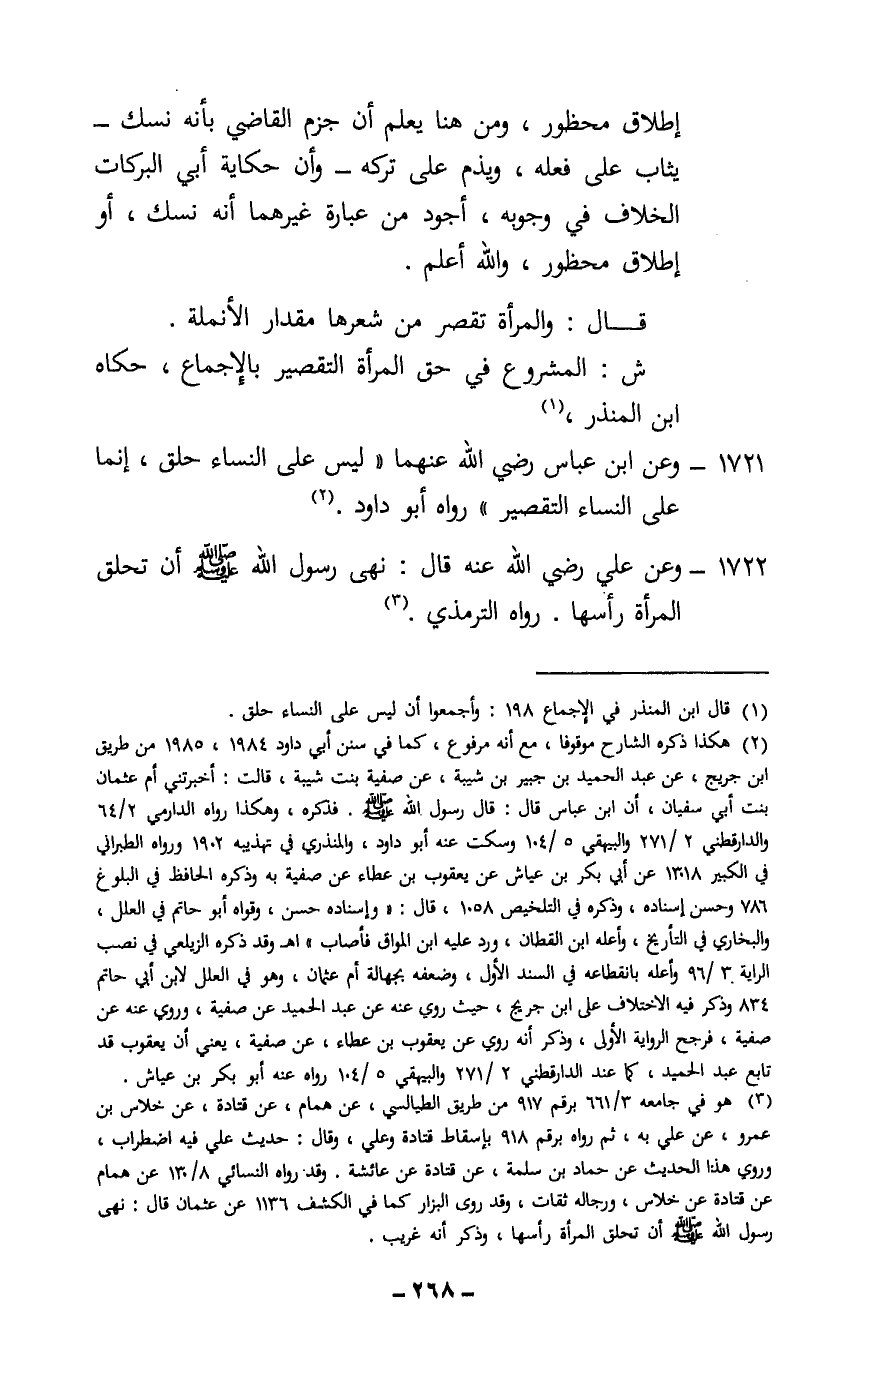 إطلاق محظور ، ومن هنا يعلم أن جزم القاضي بأنه نسك ــ
يثاب على فعله ، ويذم على تركه ــ وأن حكاية أبي البركات
الخلاف في وجوبه ، أجود من عبارة غيرهما أنه نسك ، أو
إطلاق محظور ، والله أعلم .
قــــال : والمرأة تقصر من شعرها مقدار الأنملة .
ش : المشروع في حق المرأة التقصير بالإجماع ، حكاه
ابن المنذر ،(١)
١٧٢١ ــ وعن ابن عباس رضي الله عنهما « ليس على النساء حلق ، إنما
على النساء التقصير » رواه أبو داود .(٢)
١٧٢٢ ــ وعن علي رضي الله عنه قال : نهى رسول الله ﷺ أن تحلق
المرأة رأسها . رواه الترمذي .(٣)
(١) قال ابن المنذر في الإجماع ١٩٨ : وأجمعوا أن ليس على النساء حلق .
(٢) هكذا ذكره الشارح موقوفا ، مع أنه مرفوع ، كما في سنن أبي داود ١٩٨٤ ، ١٩٨٥ من طريق
ابن جريج ، عن عبد الحميد بن جبير بن شيبة ، عن صفية بنت شيبة ، قالت : أخبرتني أم عثمان
بنت أبي سفيان ، أن ابن عباس قال : قال رسول الله ﷺ . فذكره ، وهكذا رواه الدارمي ٦٤/٢
والدارقطني ٢ /٢٧١ والبيهقي ٥ /١٠٤ وسكت عنه أبو داود ، والمنذري في تهذيبه ١٩٠٢ ورواه الطبراني
في الكبير ١٣٠١٨ عن أبي بكر بن عياش عن يعقوب بن عطاء عن صفية به وذكره الحافظ في البلوغ
٧٨٦ وحسن إسناده ، وذكره في التلخيص ١٠٥٨ ، قال : « وإسناده حسن ، وقواه أبو حاتم في العلل ،
والبخاري في التأريخ ، وأعله ابن القطان ، ورد عليه ابن المواق فأصاب » اهـ وقد ذكره الزيلعي في نصب
الراية ٣ /٩٦ وأعله بانقطاعه في السند الأول ، وضعفه بجهالة أم عثمان ، وهو في العلل لابن أبي حاتم
٨٣٤ وذكر فيه الاختلاف على ابن جريج ، حيث روي عنه عن عبد الحميد عن صفية ، وروي عنه عن
صفية ، فرجح الرواية الأولى ، وذكر أنه روي عن يعقوب بن عطاء ، عن صفية ، يعني أن يعقوب قد
تابع عبد الحميد ، كما عند الدارقطني ٢ /٢٧١ والبيهقي ٥ /١٠٤ رواه عنه أبو بكر بن عياش .
(٣) هو في جامعه ٦٦١/٣ برقم ٩١٧ من طريق الطيالسي ، عن همام ، عن قتادة ، عن خلاس بن
عمرو ، عن علي به ، ثم رواه برقم ٩١٨ بإسقاط قتادة وعلي ، وقال : حديث علي فيه اضطراب ،
وروي هذا الحديث عن حماد بن سلمة ، عن قتادة عن عائشة . وقد رواه النسائي ١٣٠/٨ عن همام
عن قتادة عن خلاس ، ورجاله ثقات ، وقد روى البزار كما في الكشف ١١٣٦ عن عثمان قال : نهى
رسول الله ﷺ أن تحلق المرأة رأسها ، وذكر أنه غريب .
ــ ٢٦٨ ــ